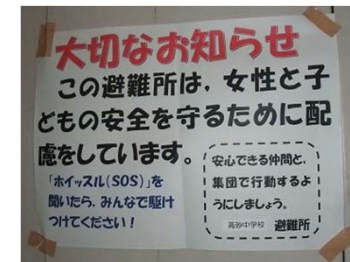 大切なお知らせ
この避難所は，女性と子
どもの安全を守るために配
慮をしています。
「ホイッスル(SOS)」を
聞いたら，みんなで駆け
つけてください！
安心できる仲間と，
集団で行動するよ
うにしましょう。
高砂中学校 避難所